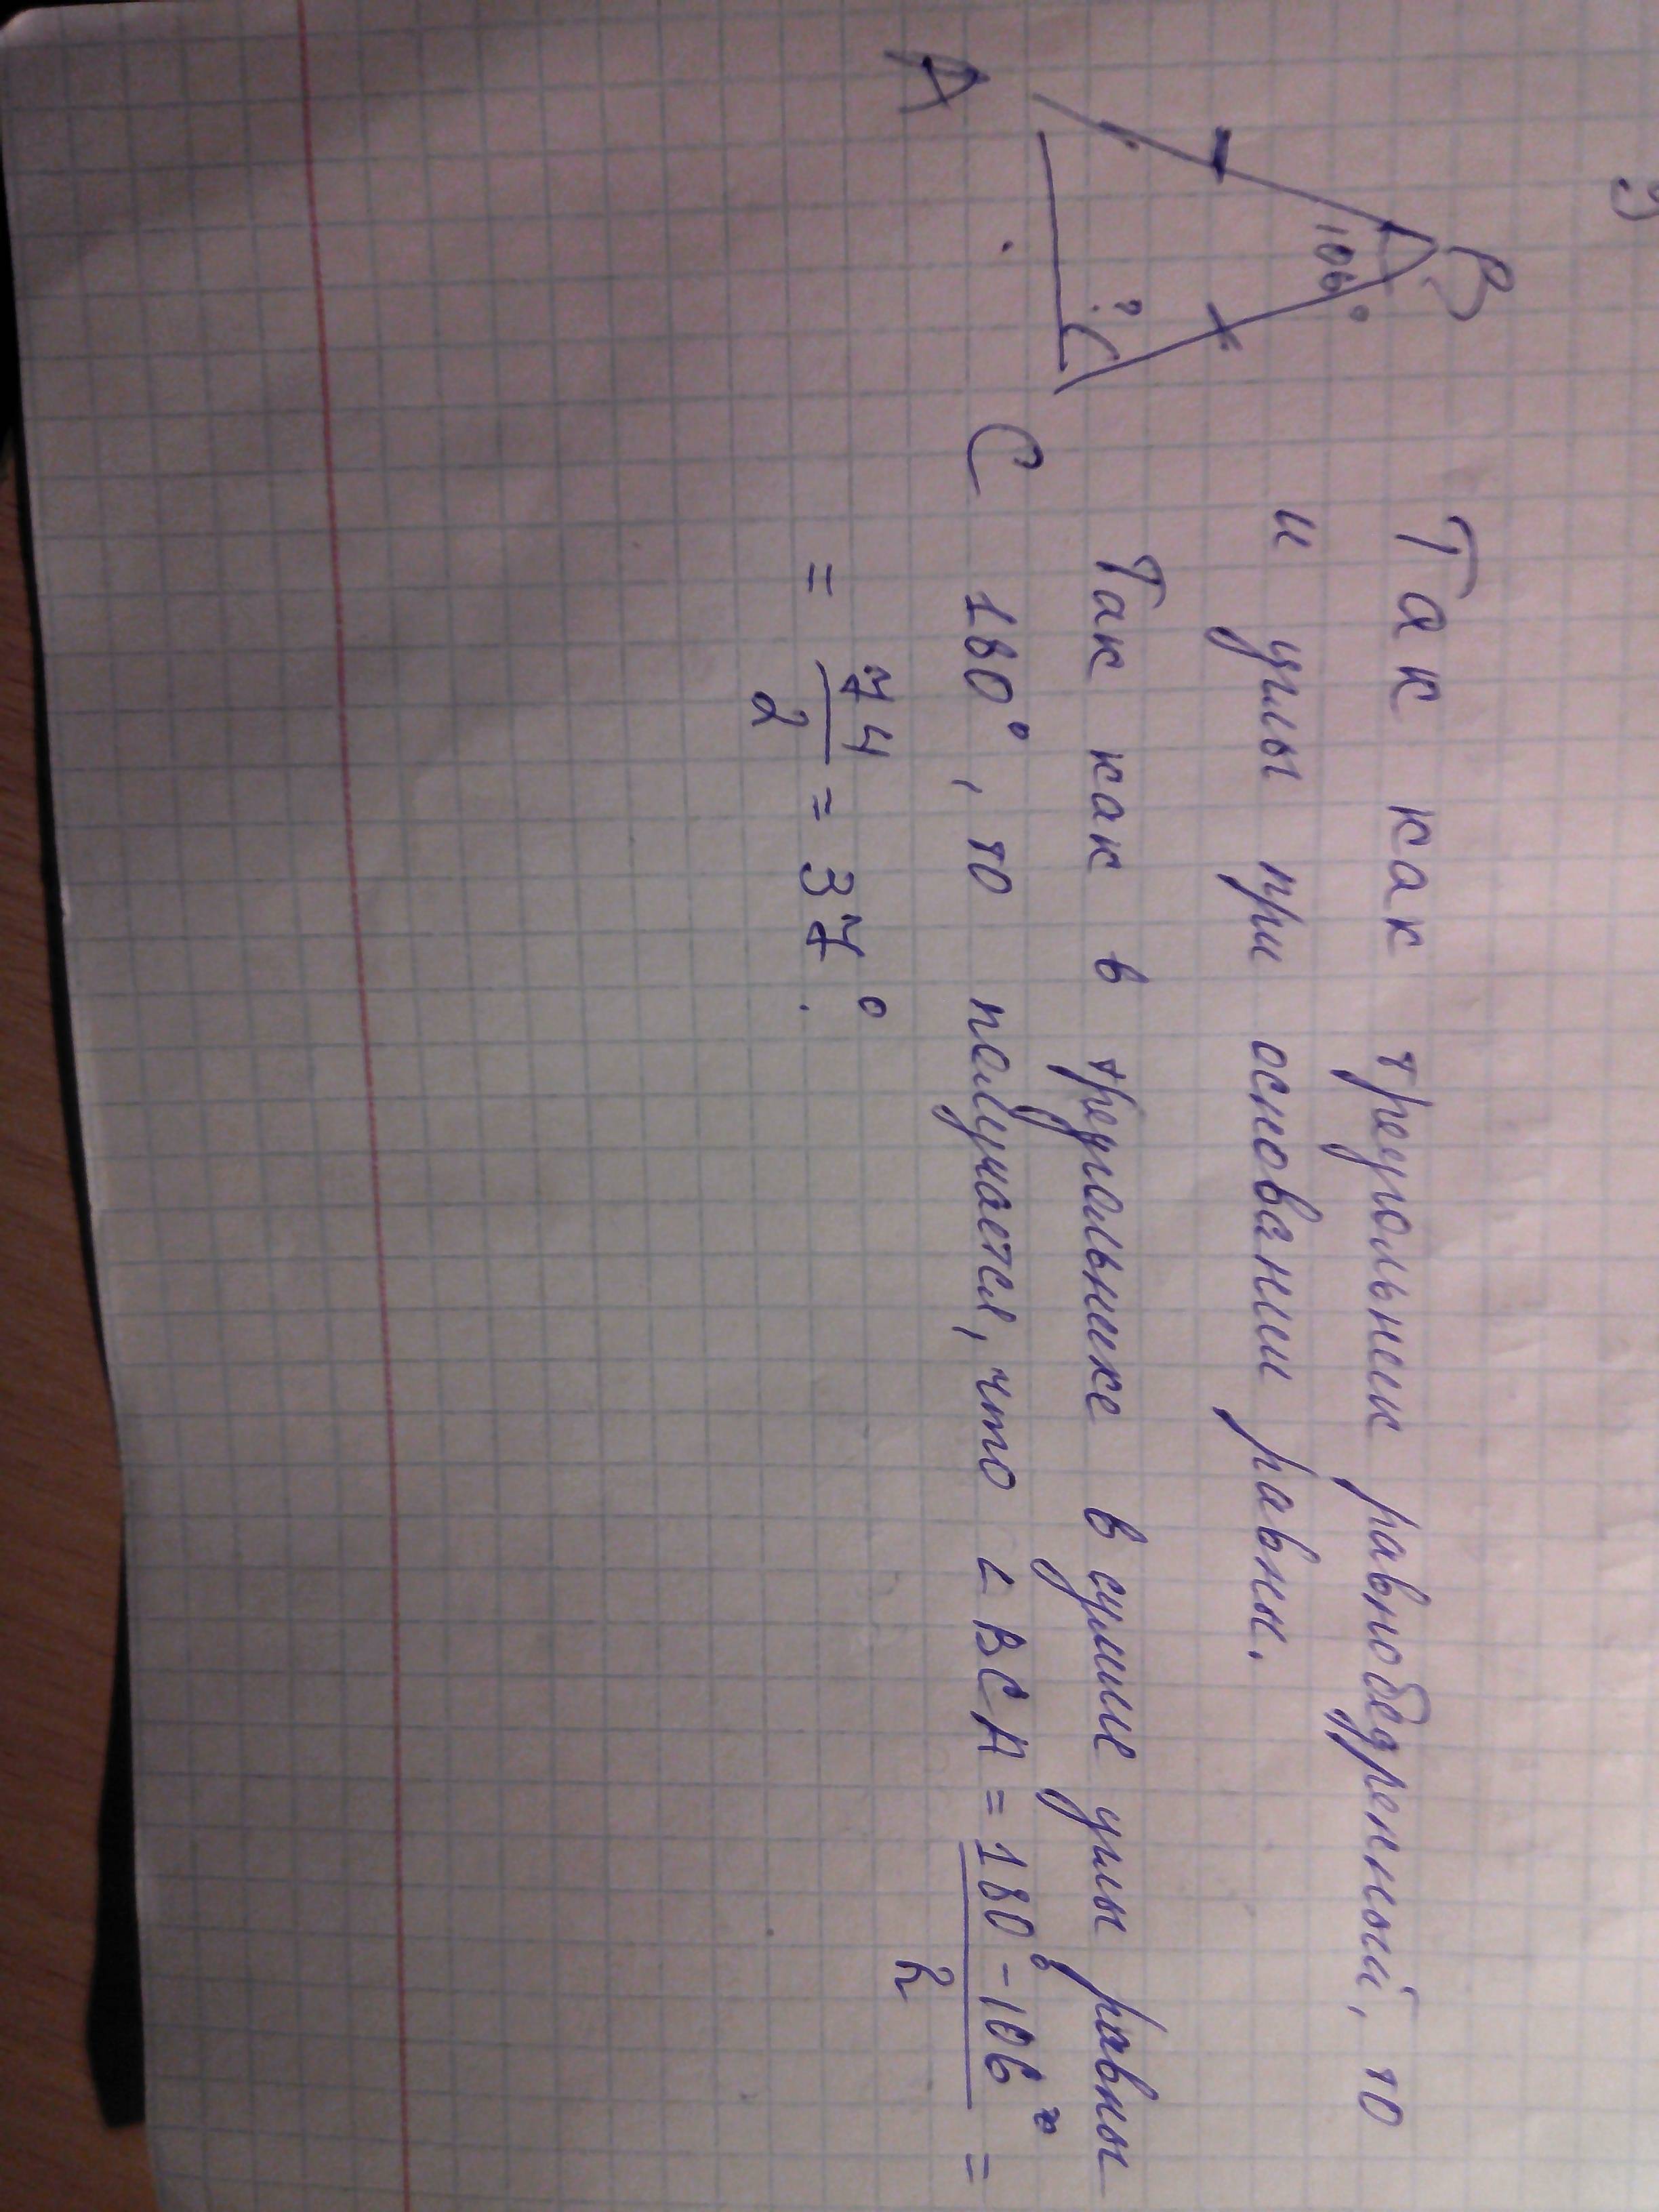 B
106°
?
A
C
Так как треугольник равнобедренный, то
и углы при основании равны.
Так как в треугольнике в сумме углы равны
180°, то получается, что ∠ BCA = (180° - 106°)/2 =
= 74/2 = 37°.